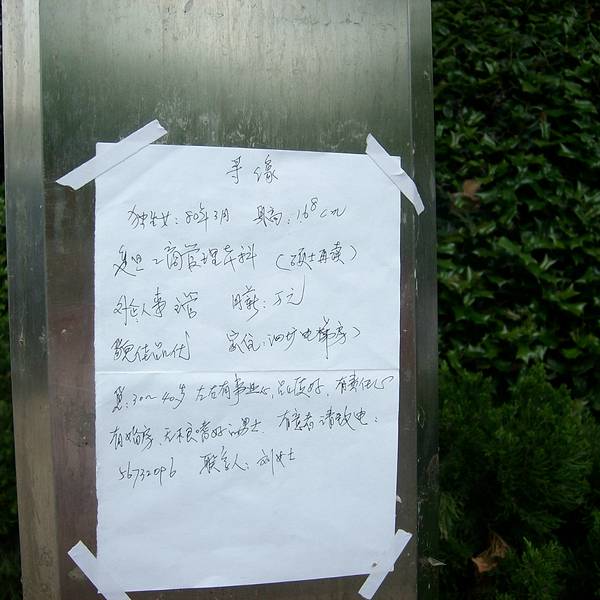 寻缘
独生女：80年3月 身高：1.68cm
复旦工商管理本科（硕士再读）
外企人事 月薪：万元
貌佳品优 家住：电梯房
觅：30～40岁左右有事业心，品质好，有责任心
有婚房，无不良嗜好的男士．有意者请致电：
56732096 联系人：刘女士